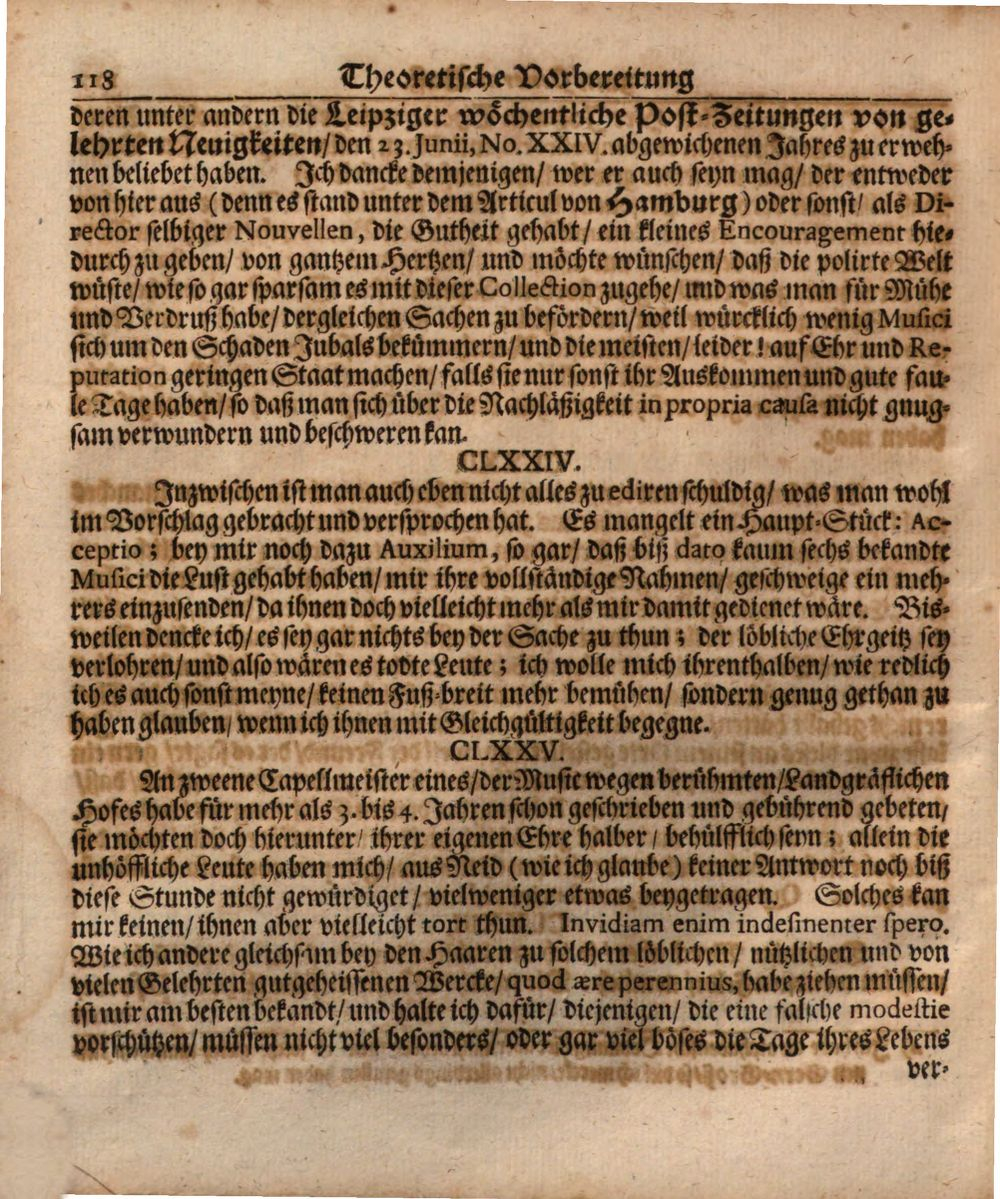 118 Theoretische Vorbereitung
deren unter andern die Leipziger wöchentliche Post-Zeitungen von ge-
lehrten Neuigkeiten/ den 23. Junii, No. XXIV. abgewichenen Jahres zu erweh-
nen beliebet haben. Ich dancke demjenigen/ wer er auch seyn mag/ der entweder
von hier aus (denn es stand unter dem Articul von Hamburg) oder sonst/ als Di-
rector selbiger Nouvellen, die Gutheit gehabt/ ein kleines Encouragement hie-
durch zu geben/ von gantzem Hertzen/ und möchte wünschen/ daß die polirte Welt
wüste/ wie so gar sparsam es mit dieser Collection zugehe/ und was man für Mühe
und Verdruß habe/ dergleichen Sachen zu befördern/ weil würcklich wenig Musici
sich um den Schaden Jubals bekümmern/ und die meisten/ leider! auf Ehr und Re-
putation geringen Staat machen/ falls sie nur sonst ihr Auskommen und gute fau-
le Tage haben/ so daß man sich über die Nachläßigkeit in propria causa nicht gnug-
sam verwundern und beschweren kan.
CLXXIV.
Inzwischen ist man auch eben nicht alles zu ediren schuldig/ was man wohl
im Vorschlag gebracht und versprochen hat. Es mangelt ein Haupt-Stück: Ac-
ceptio; bey mir noch dazu Auxilium, so gar/ daß biß dato kaum sechs bekandte
Musici die Lust gehabt haben/ mir ihre vollständige Nahmen/ geschweige ein meh-
rers einzusenden/ da ihnen doch vielleicht mehr als mir damit gedienet wäre. Bis-
weilen dencke ich/ es sey gar nichts bey der Sache zu thun; der löbliche Ehrgeitz sey
verlohren/ und also wären es todte Leute; ich wolle mich ihrenthalben/ wie redlich
ich es auch sonst meyne/ keinen Fuß-breit mehr bemühen/ sondern genug gethan zu
haben glauben/ wenn ich ihnen mit Gleichgültigkeit begegne.
CLXXV.
An zweene Capellmeister eines/ der Music wegen berühmten/ Landgräflichen
Hofes habe für mehr als 3. bis 4. Jahren schon geschrieben und gebührend gebeten/
sie möchten doch hierunter/ ihrer eigenen Ehre halber/ behülfflich seyn; allein die
unhöffliche Leute haben mich/ aus Neid (wie ich glaube) keiner Antwort noch biß
diese Stunde nicht gewürdiget/ vielweniger etwas beygetragen. Solches kan
mir keinen/ ihnen aber vielleicht tort thun. Invidiam enim indesinenter spero.
Wie ich andere gleichsam bey den Haaren zu solchem löblichen/ nützlichen und von
vielen Gelehrten gutgeheissenen Wercke/ quod ære perennius, habe ziehen müssen/
ist mir am besten bekandt/ und halte ich dafür/ diejenigen/ die eine falsche modestie
vorschützen/ müssen nicht viel besonders/ oder gar viel böses die Tage ihres Lebens
ver-